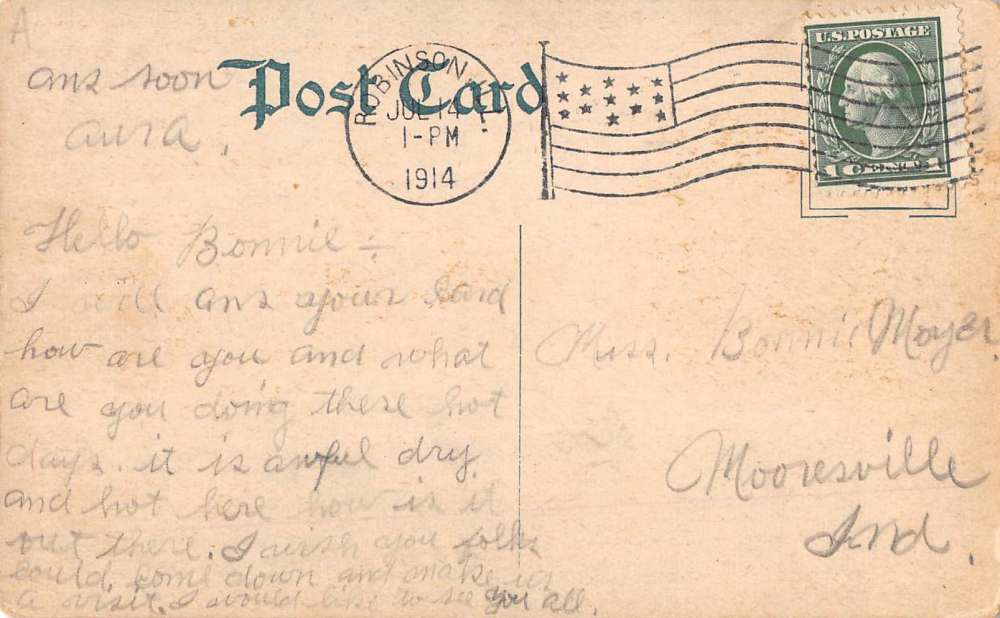 A
ans soon
aura.
Post Card
ROBINSON
JUL 14
1-PM
1914
U.S.POSTAGE
1 CENT 1
Hello Bonnie ÷
I will ans your card
how are you and what
are you doing these hot
days. it is awful dry
and hot here how is it
out there. I wish you folks
could come down and make us
a visit. I would like to see you all.
Miss. Bonnie Moyer.
Mooresville
Ind.